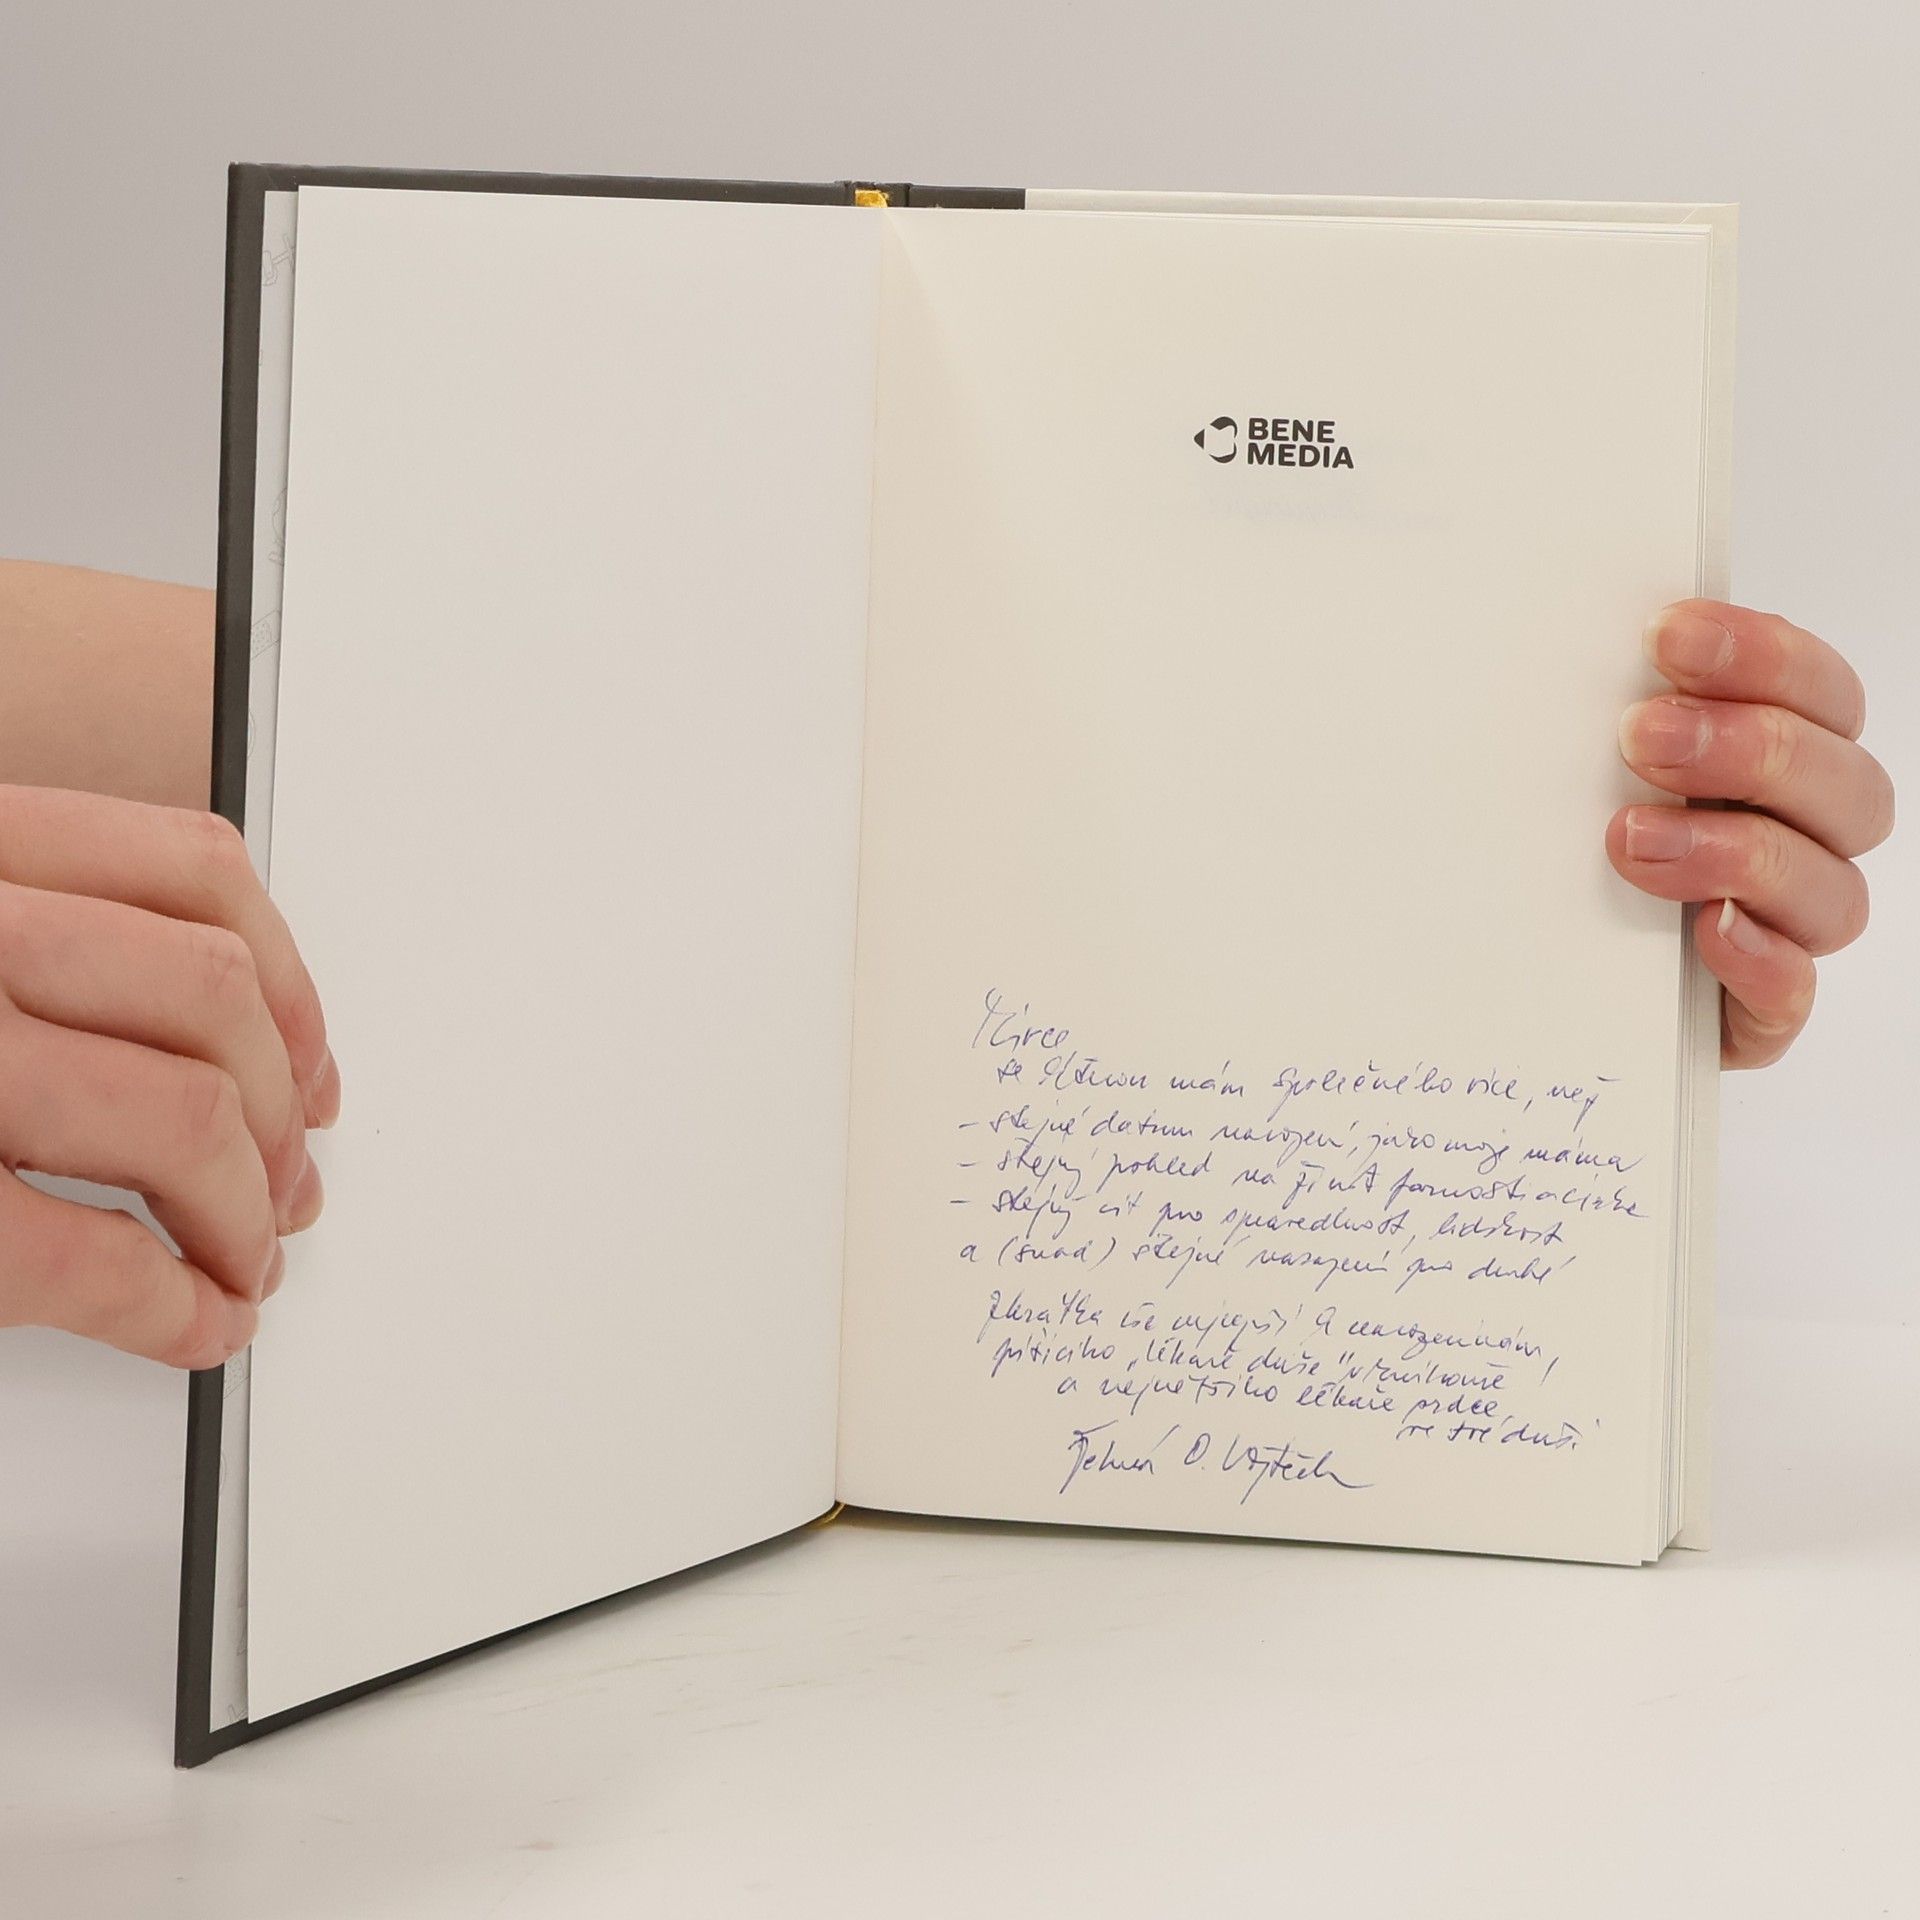 BENE
MEDIA
Mirce
se kterou mám společného více, než
– stejné datum narození, jako moje máma
– stejný pohled na život farnosti a církve
– stejný cit pro spravedlnost, lidskost
a (snad) stejné nasazení pro druhé
Zkrátka vše nejlepší k narozeninám,
píšícího „lékaře duše" v knihovně
a největšího lékaře srdce,
ve tvé duši
O. Vojtěch